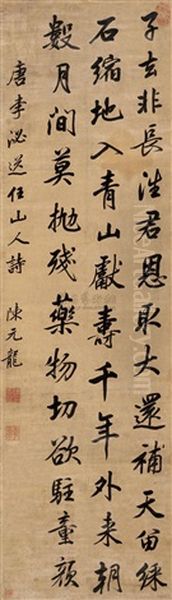 子去非長往君恩取大還補天留綵
石縮地入青山獻壽千年外来朝
數月間莫抛殘藥物切欲駐童顔
唐李泌送任山人詩 陳元龍